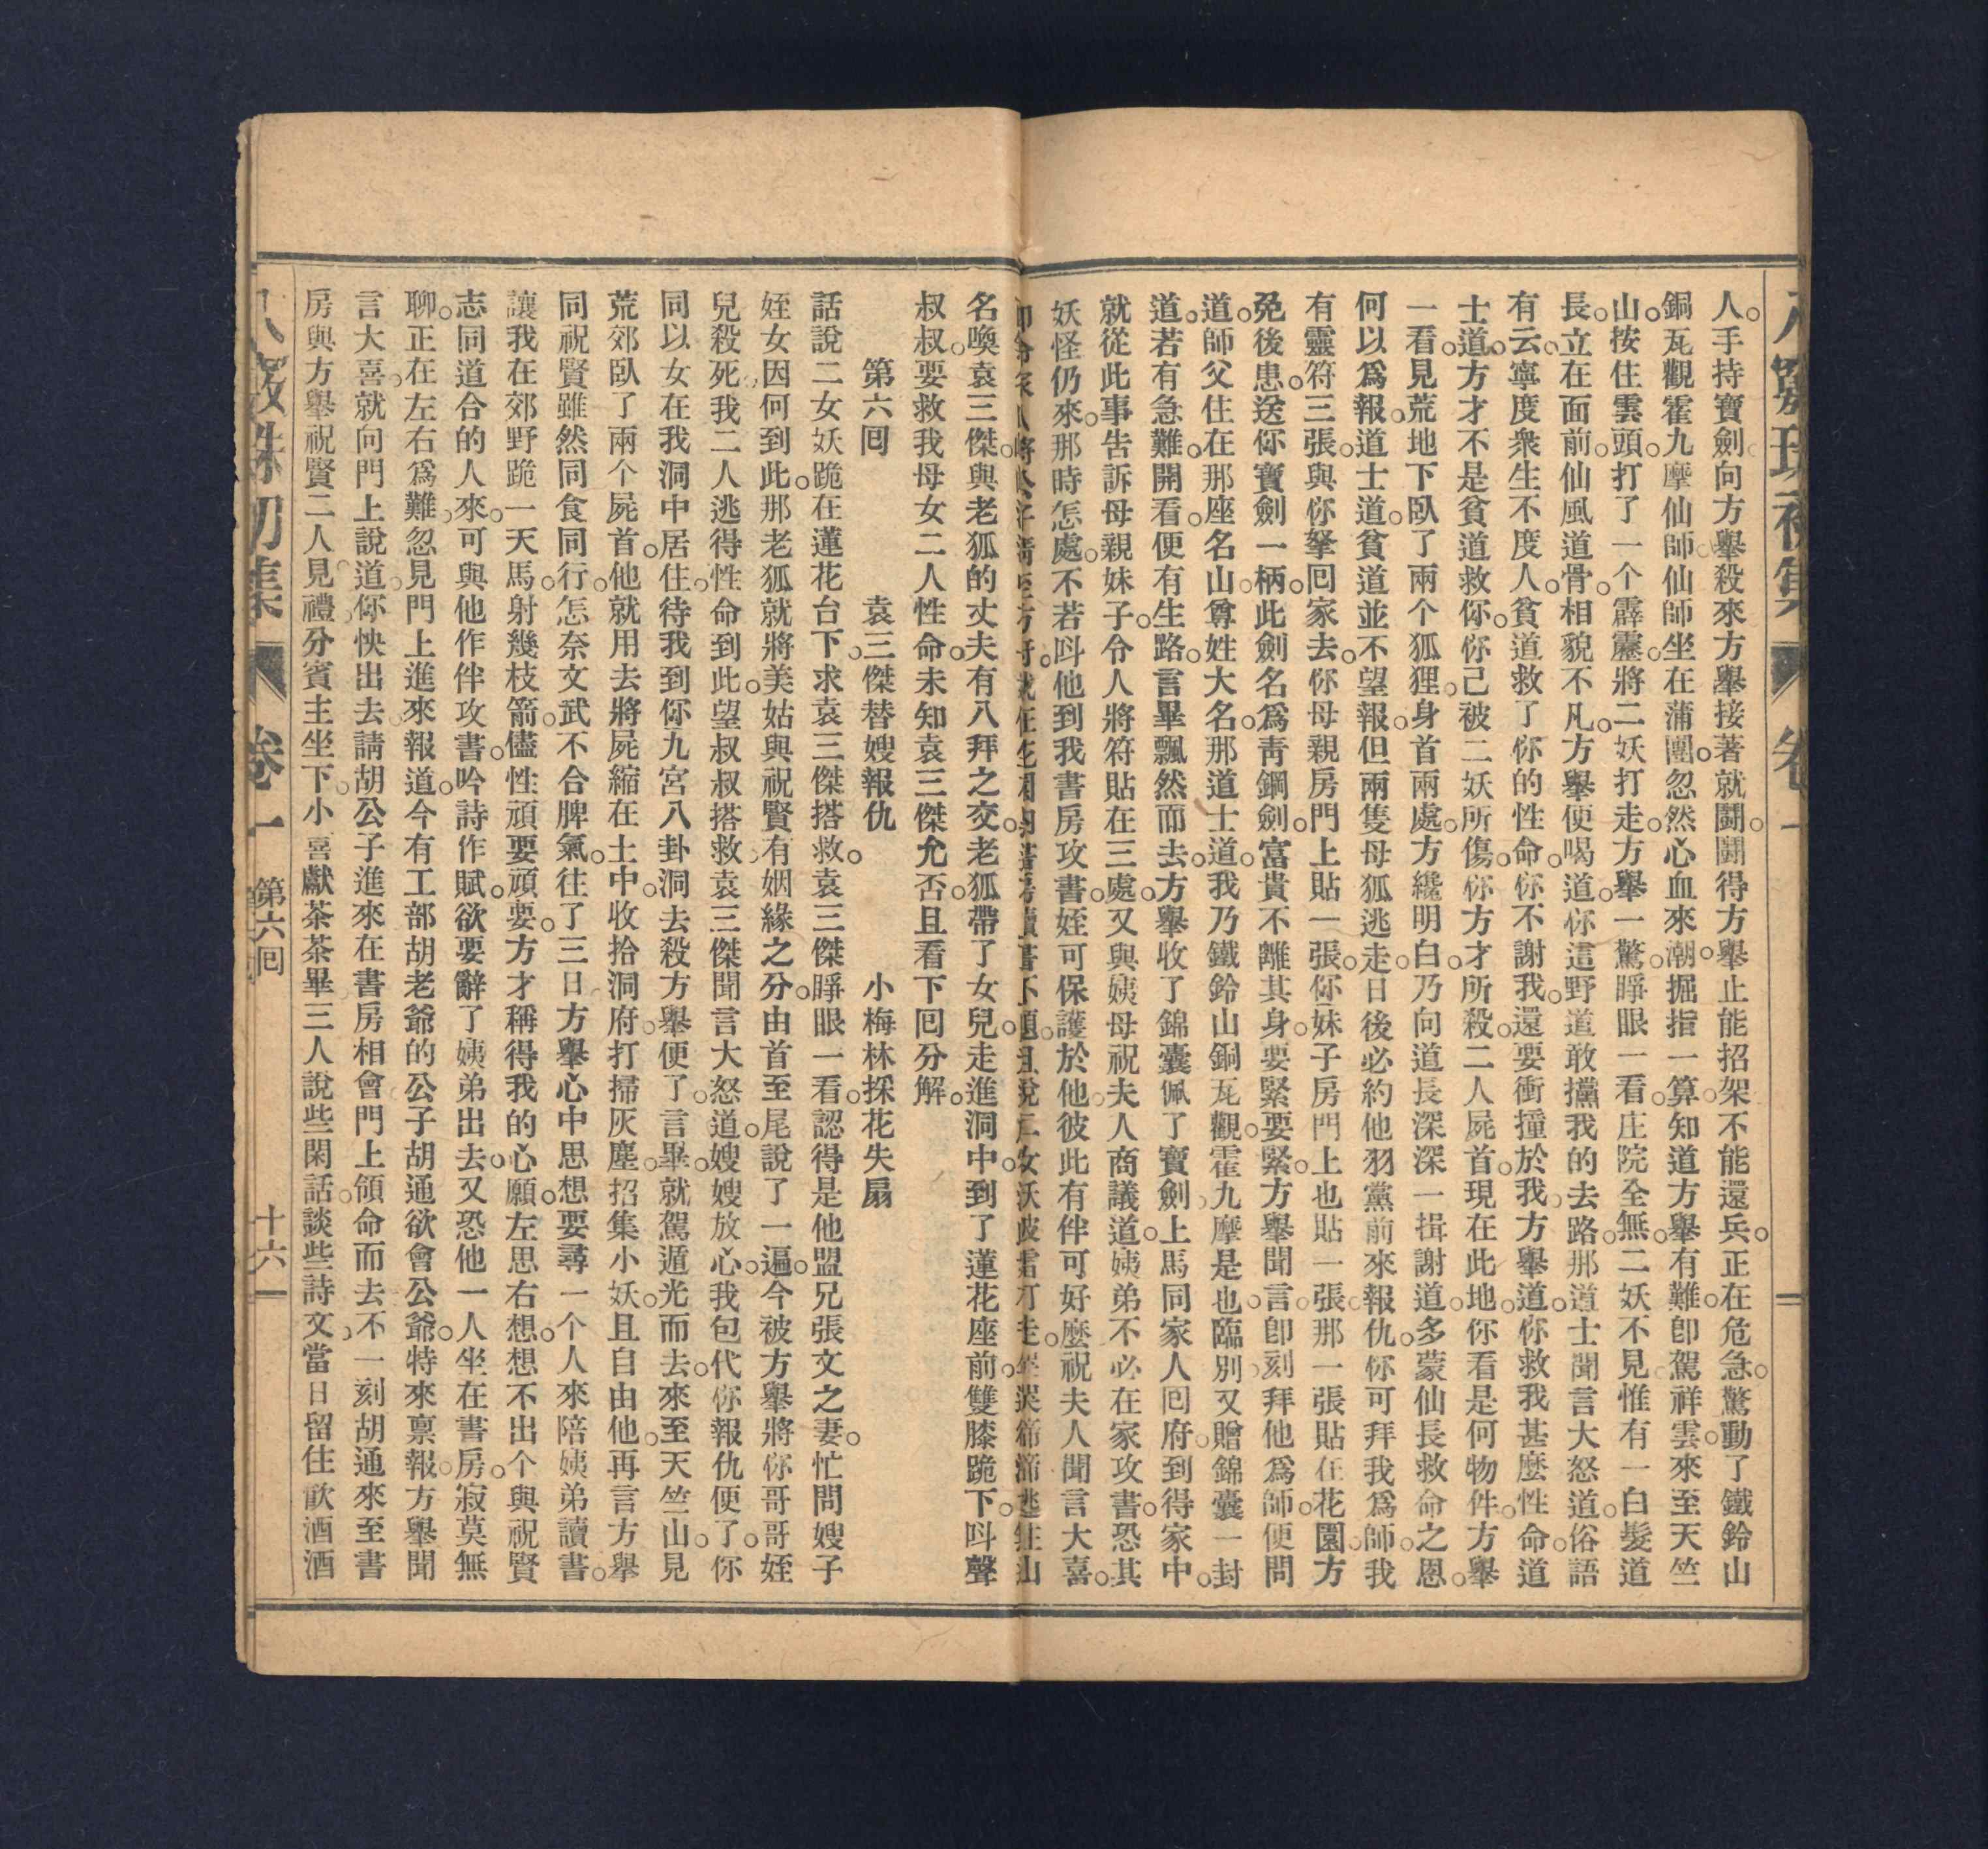 人。手持寶劍向方舉殺來方舉接著就鬪。鬪得方舉止能招架不能還兵。正在危急。驚動了鐵鈴山
銅瓦觀霍九摩仙師仙師坐在蒲團。忽然心血來潮。掘指一算。知道方舉有難。卽駕祥雲。來至天竺
山。按住雲頭。打了一个霹靂。將二妖打走。方舉一驚。睜眼一看。庄院全無。二妖不見惟有一白髮道
長。立在面前。仙風道骨。相貌不凡。方舉便喝道。你這野道敢攩我的去路。那道士聞言大怒道。俗語
有云。寧度衆生不度人。貧道救了你的性命。你不謝我。還要衝撞於我。方舉道。你救我甚麼性命。道
士道。方才不是貧道救你。你己被二妖所傷。你方才所殺。二人屍首。現在此地。你看是何物件。方舉
一看。見荒地下臥了兩个狐狸。身首兩處。方纔明白。乃向道長深深一揖謝道。多蒙仙長救命之恩。
何以爲報。道士道。貧道並不望報。但兩隻母狐逃走。日後必約他羽黨前來報仇。你可拜我爲師。我
有靈符三張。與你拏回家去。你母親房門上貼一張。你妹子房門上也貼一張。那一張貼在花園方
免後患。送你寶劍一柄。此劍名爲靑鋼劍。富貴不離其身。要緊要緊。方舉聞言。卽刻拜他爲師。便問
道。師父住在那座名山。尊姓大名。那道士道。我乃鐵鈴山銅瓦觀。霍九摩是也。臨別又贈錦囊一封
道。若有急難。開看。便有生路。言畢飄然而去。方舉收了錦囊佩了寶劍。上馬同家人回府。到得家中。
就從此事告訴母親妹子。令人將符貼在三處。又與姨母祝夫人商議道。姨弟不必在家攻書。恐其
妖怪仍來。那時怎處。不若呌他到我書房攻書。姪可保護於他。彼此有伴可好麼祝夫人聞言大喜。
名喚袁三傑。與老狐的丈夫有八拜之交。老狐帶了女兒。走進洞中。到了蓮花座前。雙膝跪下。呌聲
叔叔。要救我母女二人性命。未知袁三傑允否。且看下回分解。
第六回　袁三傑替嫂報仇　小梅林探花失扇
話說二女妖跪在蓮花台下。求袁三傑搭救。袁三傑睜眼一看。認得是他盟兄張文之妻。忙問嫂子
姪女因何到此。那老狐就將美姑與祝賢有姻緣之分。由首至尾說了一遍。今被方舉將你哥哥姪
兒殺死。我二人逃得性命到此。望叔叔搭救。袁三傑聞言大怒道。嫂嫂放心。我包代你報仇便了。你
同以女在我洞中居住。待我到你九宮八卦洞去殺方舉便了。言畢。就駕遁光而去。來至天竺山。見
荒郊臥了兩个屍首。他就用去將屍縮在土中。收拾洞府。打掃灰塵。招集小妖。且自由他。再言方舉
同祝賢雖然同食同行。怎奈文武不合脾氣。往了三日。方舉心中思想。要尋一个人來陪姨弟讀書。
讓我在郊野跪一天馬。射幾枝箭。儘性頑要頑要。方才稱得我的心願。左思右想。想不出个與祝賢
志同道合的人來。可與他作伴攻書。吟詩作賦。欲要辭了姨弟出去。又恐他一人坐在書房。寂莫無
聊。正在左右爲難。忽見門上進來報道。今有工部胡老爺的公子胡通欲會公爺。特來禀報。方舉聞
言大喜。就向門上說道。你快出去。請胡公子進來在書房相會門上領命而去。不一刻胡通來至書
房與方舉祝賢二人見禮。分賓主坐下。小喜獻茶茶畢三人說些閑話。談些詩文。當日留住飲酒酒
卷一　第六回　十六